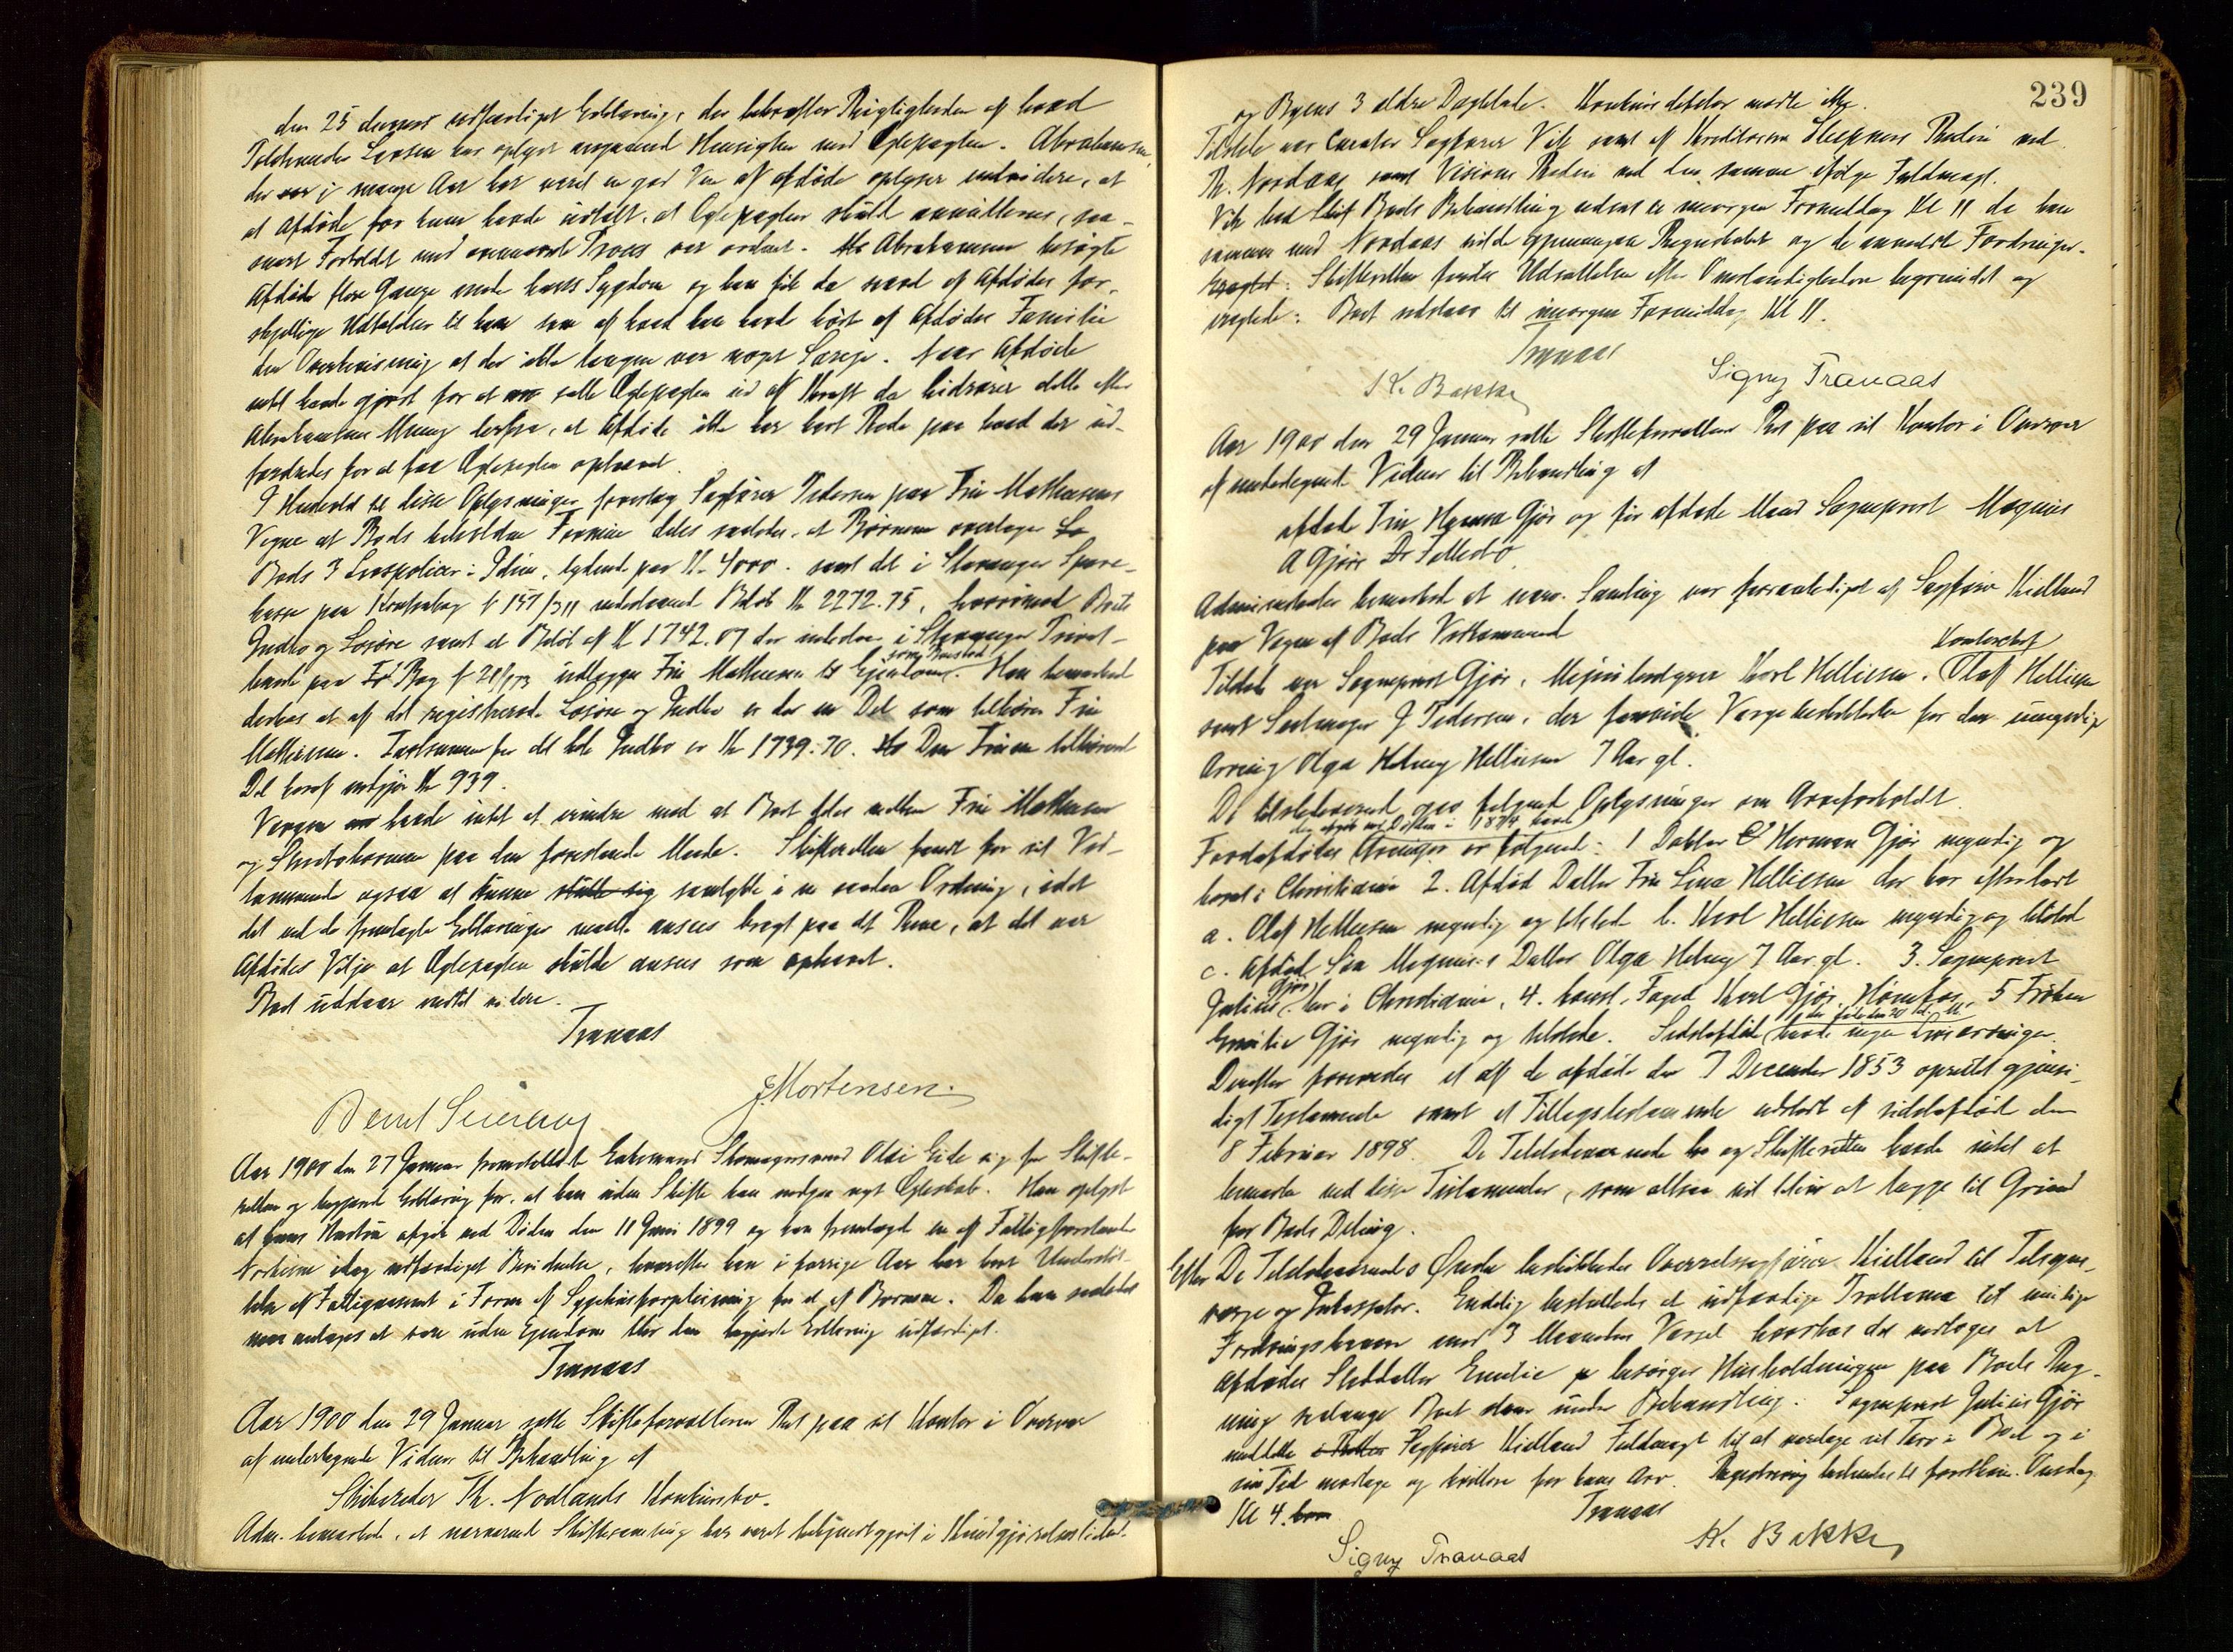 den 25 dennes udfærdiget Erklæring, der bekræfter Rigtigheden af hvad
Toldkasserer Larsen har oplyst angaaende Hensigten med Ægtepagten. Abrahamsen,
der i mange Aar har været en god Ven af afdøde oplyser endvidere, at
at Afdøde for ham havde udtalt, at Ægtepagten skulde annulleres, saa-
snart Forholdet med Proces var ordnet. Abrahamsen besøgte
Afdøde flere Gange under hans Sygdom og han fik da ved af Afdødes for-
skjellige Udtalelser til ham som af hvad han havde hørt af Afdødes Familie
den Overbevisning at der ikke længere var noget Særeje. Naar Afdøde
intet havde gjort for at sætte Ægtepagten ud af Kraft da hidrører dette efter
Abrahamsens Mening derfra, at Afdøde ikke har havt Rede paa hvad der ud-
fordredes for at faa Ægtepagten ophævet.
I Henhold til disse Oplysninger foreslog Sagfører Pedersen paa Fru Mathiesens
Vegne at Boets beholdne Formue deles saaledes, at Børnene overtager
Boets 3 Livspolicer i Idun, lydende paa Kr. 4000. samt det i Stavanger Spare-
kasse paa Kontrabog No 157/311 indestaaende Beløb Kr 2272.75, hvorimod Boets
Indbo og Løsøre samt et Beløb af Kr 1742.07 der indestaar i Stavanger Privat-
bank paa Bog No 20/173 udlægges Fru Mathiesen til Eiendom som Boeslod. Han bemærked
derhos at af det registrerede Løsøre og Indbo er der en Del som tilhører Fru
Mathiesen. Taxtsummen for det hele Indbo er Kr 1739.70. Den Fruen tilhørende
Del heraf udgjør Kr 939.
Vergen havde intet at erindre mod at Boet deles mellem Fru Mathiesen
og Skiftebørnene paa den foreslaaede Maade. Skifteretten fandt for sit Ved-
kommende ogsaa at kunne samtykke i en saadan Ordning, idet
det ved de fremlagte Erklæringer maatte ansees bragt paa det Rene, at det var
Afdødes Vilje at Ægtepagten skulde ansees som ophævet.
Boet udstaar indtil videre.
Tranaas
J Mortensen
Aar 1900 den 27 Januar fremstillede Enkemand Skomagersvend Olai Eide sig for Skifte-
retten og begjærede Erklæring for, at han uden Skifte kan indgaa nyt Ægteskab. Han oplyste
at hans Hustru afgik ved Døden den 11 Juni 1899 og han fremlagde en af Fattigforstander
idag udfærdiget Bevidnelse, hvorefter han i forrige Aar har havt Understøt-
telse af Fattigvæsenet i Form af Sygehusforpleining for et af Børnene. Da han saaledes
maa antages at være uden Eiendom blev den begjærte Erklæring udfærdiget.
Tranaas
Aar 1900 den 29 Januar satte Skifteforvalteren Ret paa sit Kontor i Overvær
af undertegnede Vidner til Behandling af
Skibsreder Th. Nodlands Konkursbo.
Adm. bemærkede, at nærværende Skiftesamling har været bekjendtgjort i Kundgjørelsestidende
239
og Byens 3 ældre Dagblade. Konkursdebitor mødte ikke.
Tilstede var Curator Sagfører Vik samt af Kreditorerne Sleipners Rederi ved
Th. Nordaas samt Visions Rederi ved den samme ifølge Fuldmagt.
Vik bad Boets Behandling udsat til imorgen Formiddag Kl 11 da han
sammen med Nordaas vilde gjennemgaa Regnskabet og de anmeldte Fordringer.
Skifteretten fandt Udsættelsen efter Omstændighederne begrundet og
eragtede: Boet udstaar til imorgen Formiddag Kl 11.
Tranaas
K. Bakke Signy Tranaas
Aar 1900 den 29 Januar satte Skifteforvalteren Ret paa sit Kontor i Overvær
af undertegnede Vidner til Behandling af
afdøde Fru Hanna Gjør og før afdøde Mand Sogneprest Magnus
A Gjørs Fællesbo
Administrator bemærkede at nærv. Samling var foranlediget af Sagfører Kielland
paa Vegne af Boets Vedkommende
Tilstede var Sogneprest Gjør, Karl Helliesen, Kontorchef Olaf Helliesen
samt J. Pedersen, der foreslaaes Verge beskikket for den umyndige
Arving Olga Helmy Helliesen 7 Aar gl.
De tilstedeværende gav følgende Oplysninger om Arveforholdet.
Førstafdødes der afgik ved Døden i 1874 havde Arvinger er følgende: 1 Datter Herman Gjør myndig og
bosat i Christiania 2. Afdød Datter Fru Lina Helliesen der har efterladt
a. Olaf Helliesen myndig og tilstede b. Karl Helliesen myndig og tilstede
c. Afdød Søn Magnus's Datter Olga Helmy 7 Aar gl. 3. Sogneprest
Julius Gjør her i Christiania, 4. const. Foged Karl Gjør Hønefos, 5 Frøken
Emilie Gjør myndig og tilstede. Sidstafdøde havde ingen Livsarvinger.
Derefter foreviste et af de afdøde den 7 December 1853 oprettet gjensi-
digt Testamente samt et Tillægstestamente udstedt af sidstafdøde den
8 Februar 1898. De Tilstedeværende og Skifteretten havde intet at
bemærke ved disse Testamenter, som altsaa vil blive at lægge til Grund
for Boets Deling.
Efter De Tilstedeværendes Ønske beskikkedes Overretssagfører Kielland til Tilsyns-
verge og Inkassator. Endelig besluttedes at udfærdige Proklama til mulige
Fordringshavere med 3 Maaneders Varsel hvorhos det vedtoges at
Afdødes Steddatter Emilie besørger Husholdningen paa Boets Reg-
ning saalænge Boet staar under Behandling. Sogneprest Julius Gjør
meddelte Sagfører Kielland Fuldmagt til at varetage sit Tarv i Boet og i
sin Tid modtage og kvittere for hans Arv. Registrering besluttes til førstkom. Onsdag
Kl 4.
Tranaas
Signy Tranaas K. Bakke